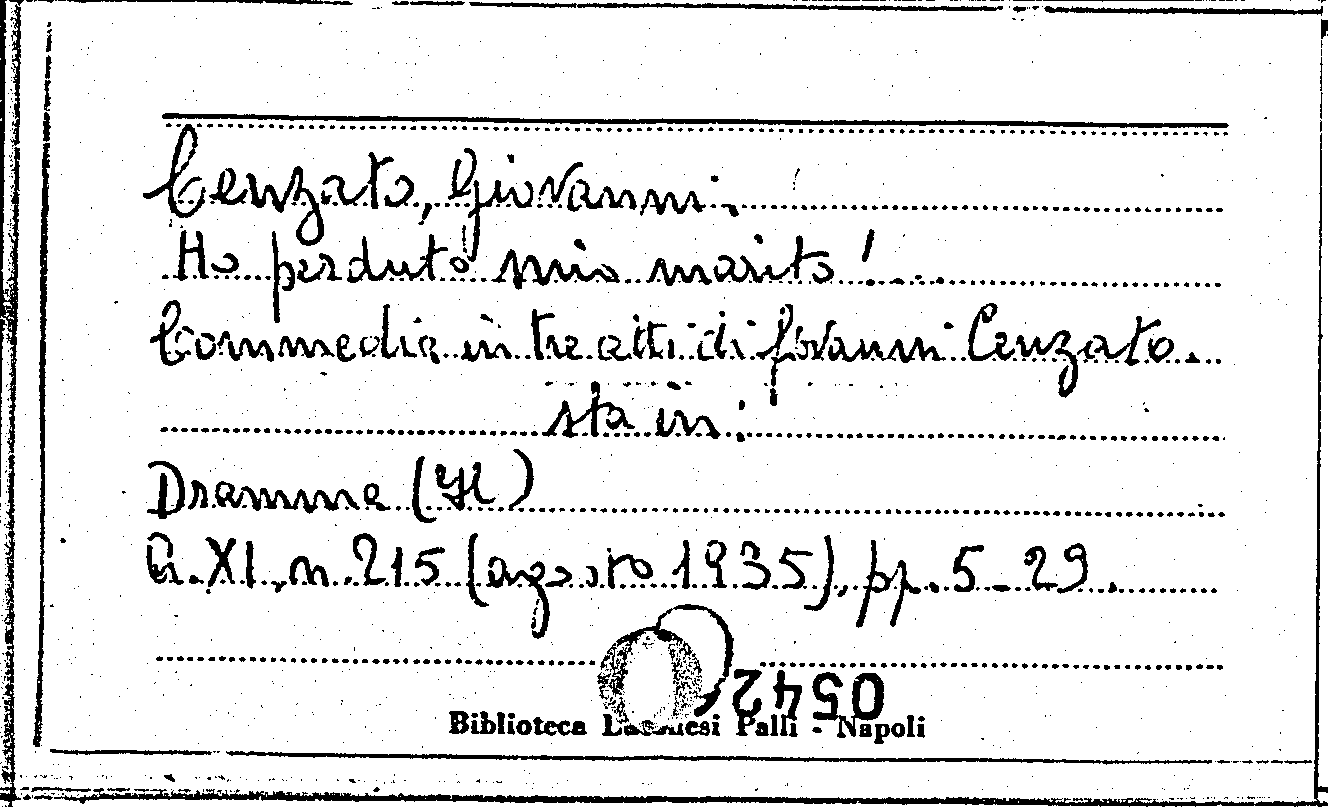 Cenzato, Giovanni.
Ho perduto mio marito!...
Commedia in tre atti di Giovanni Cenzato.
sta in:
Dramma (Il)
A. XI, n. 215 (agosto 1935), pp. 5-29.
0542
Biblioteca Lucchesi Palli - Napoli